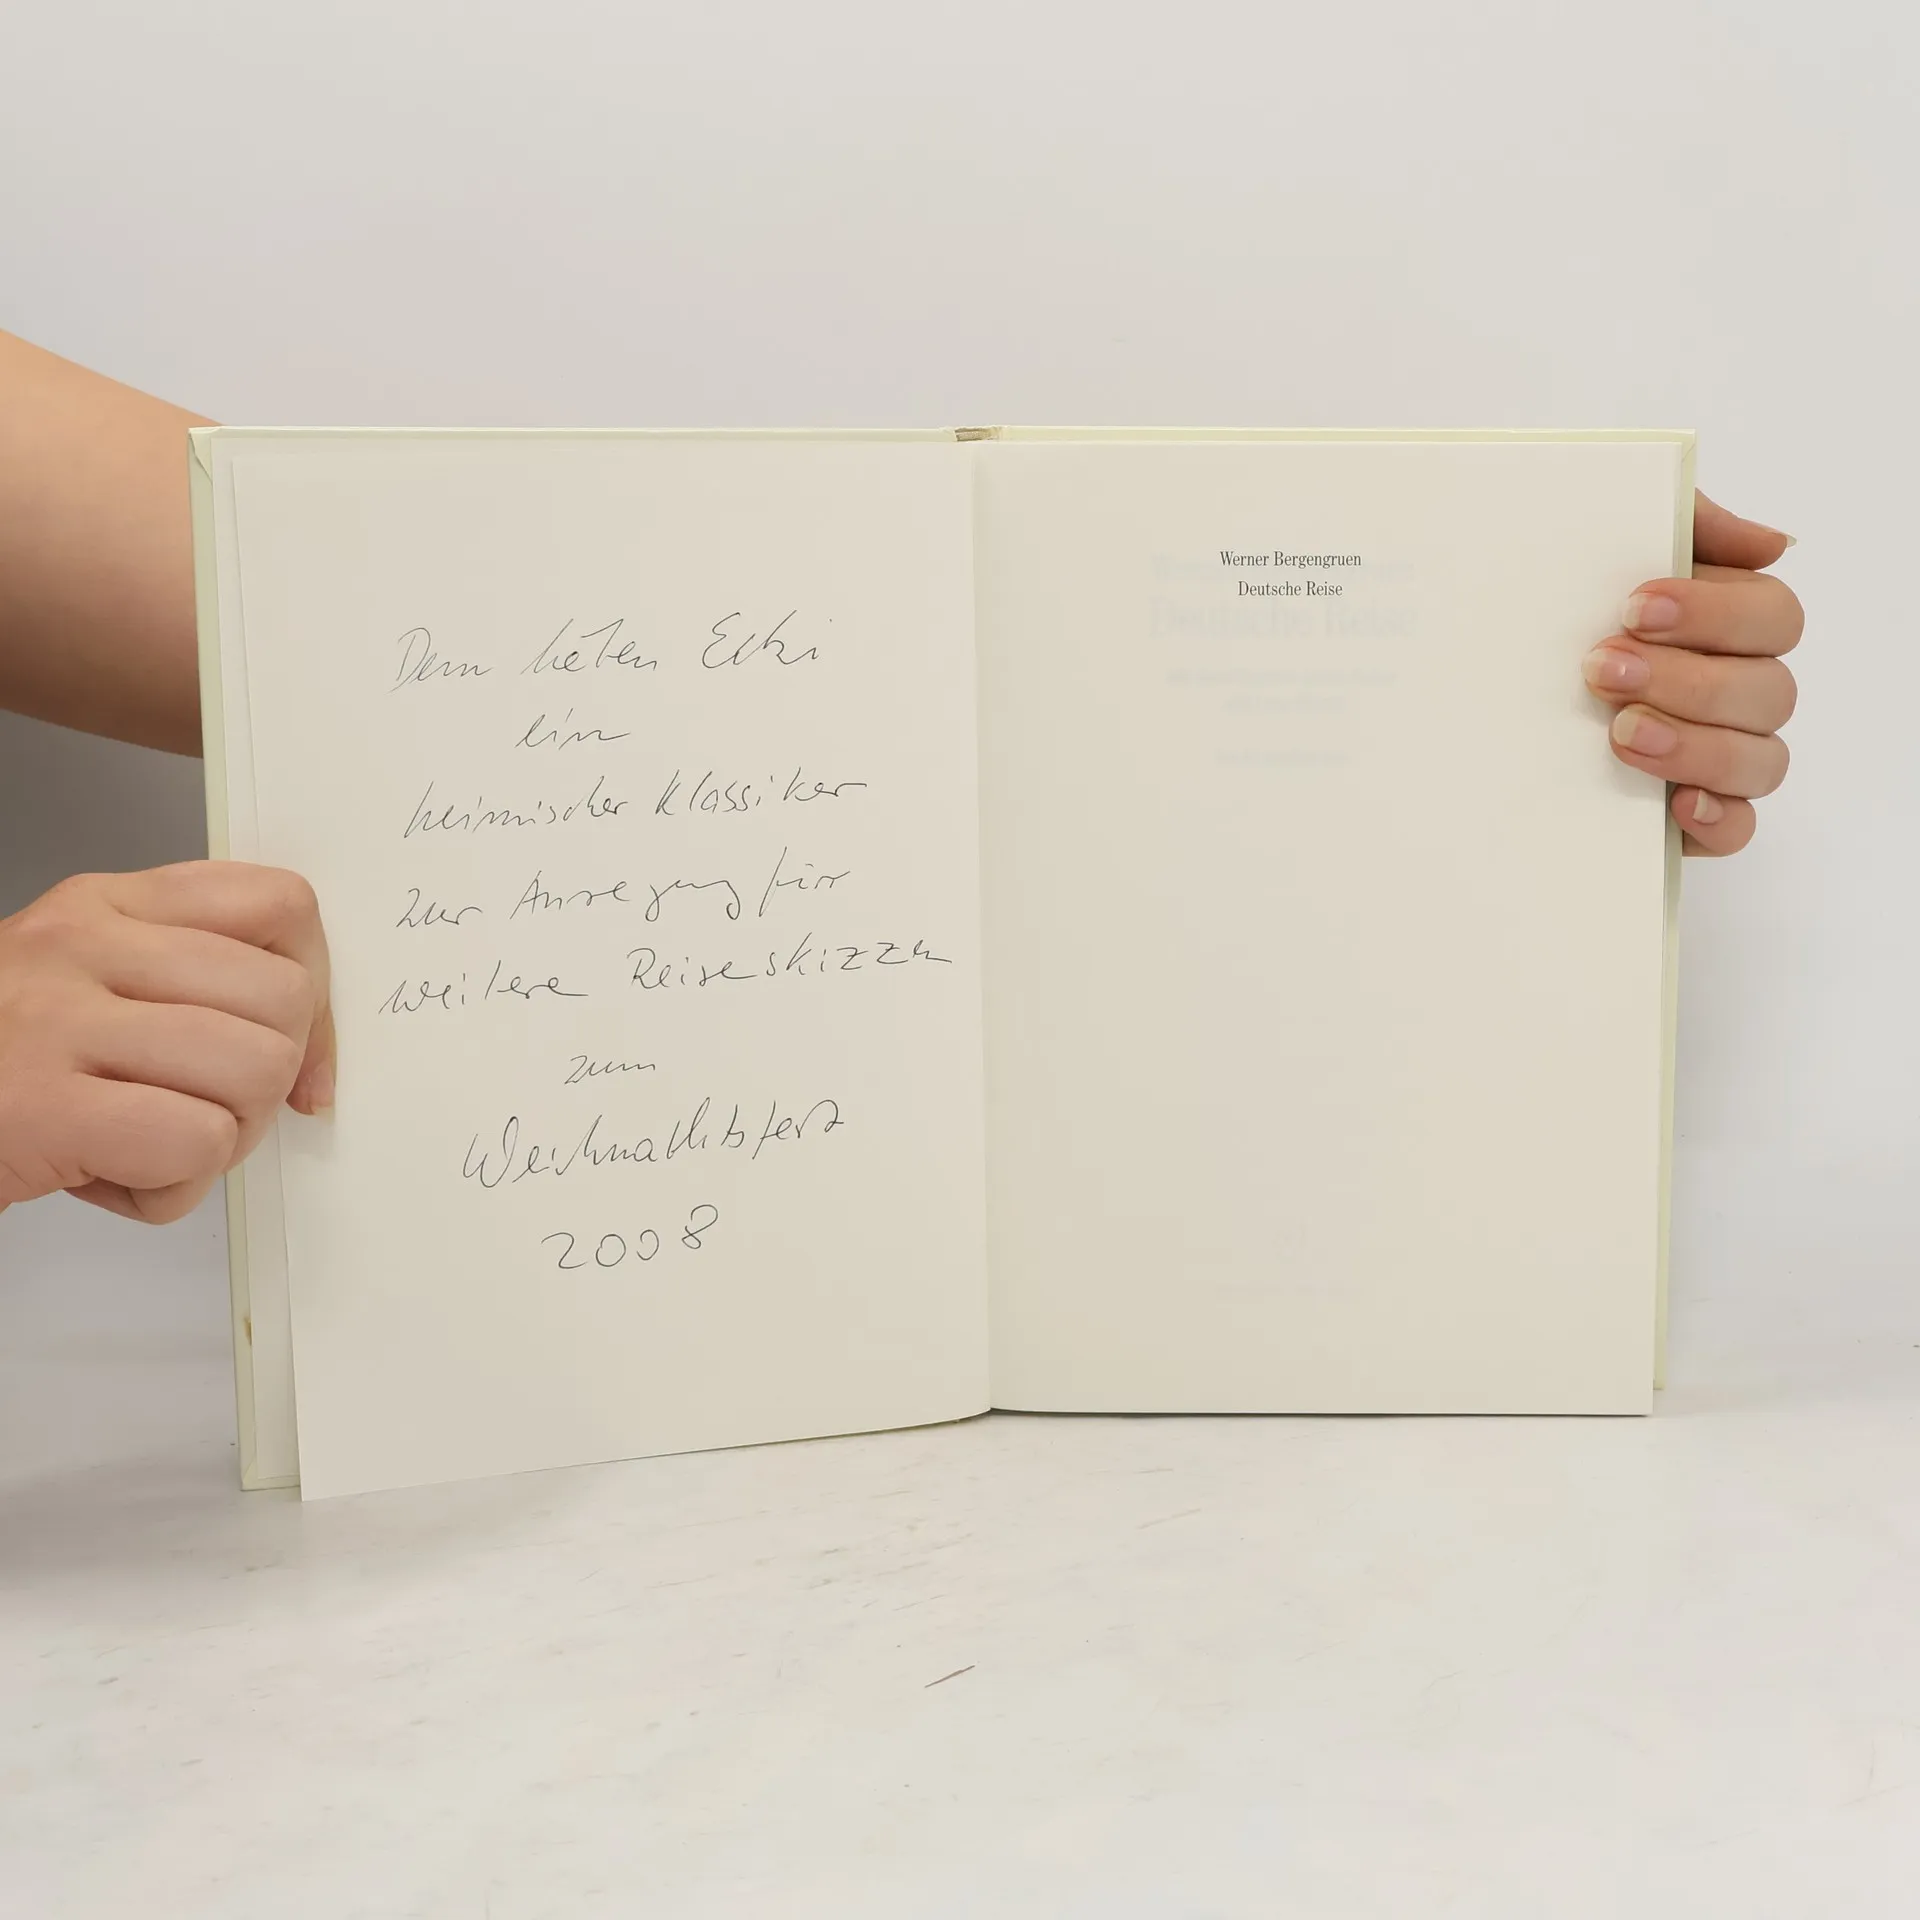 Dem lieben Ecki
ein
heimischer Klassiker
zur Anregung für
weitere Reiseskizzen
zum
Weihnachtsfest
2008
Werner Bergengruen
Deutsche Reise